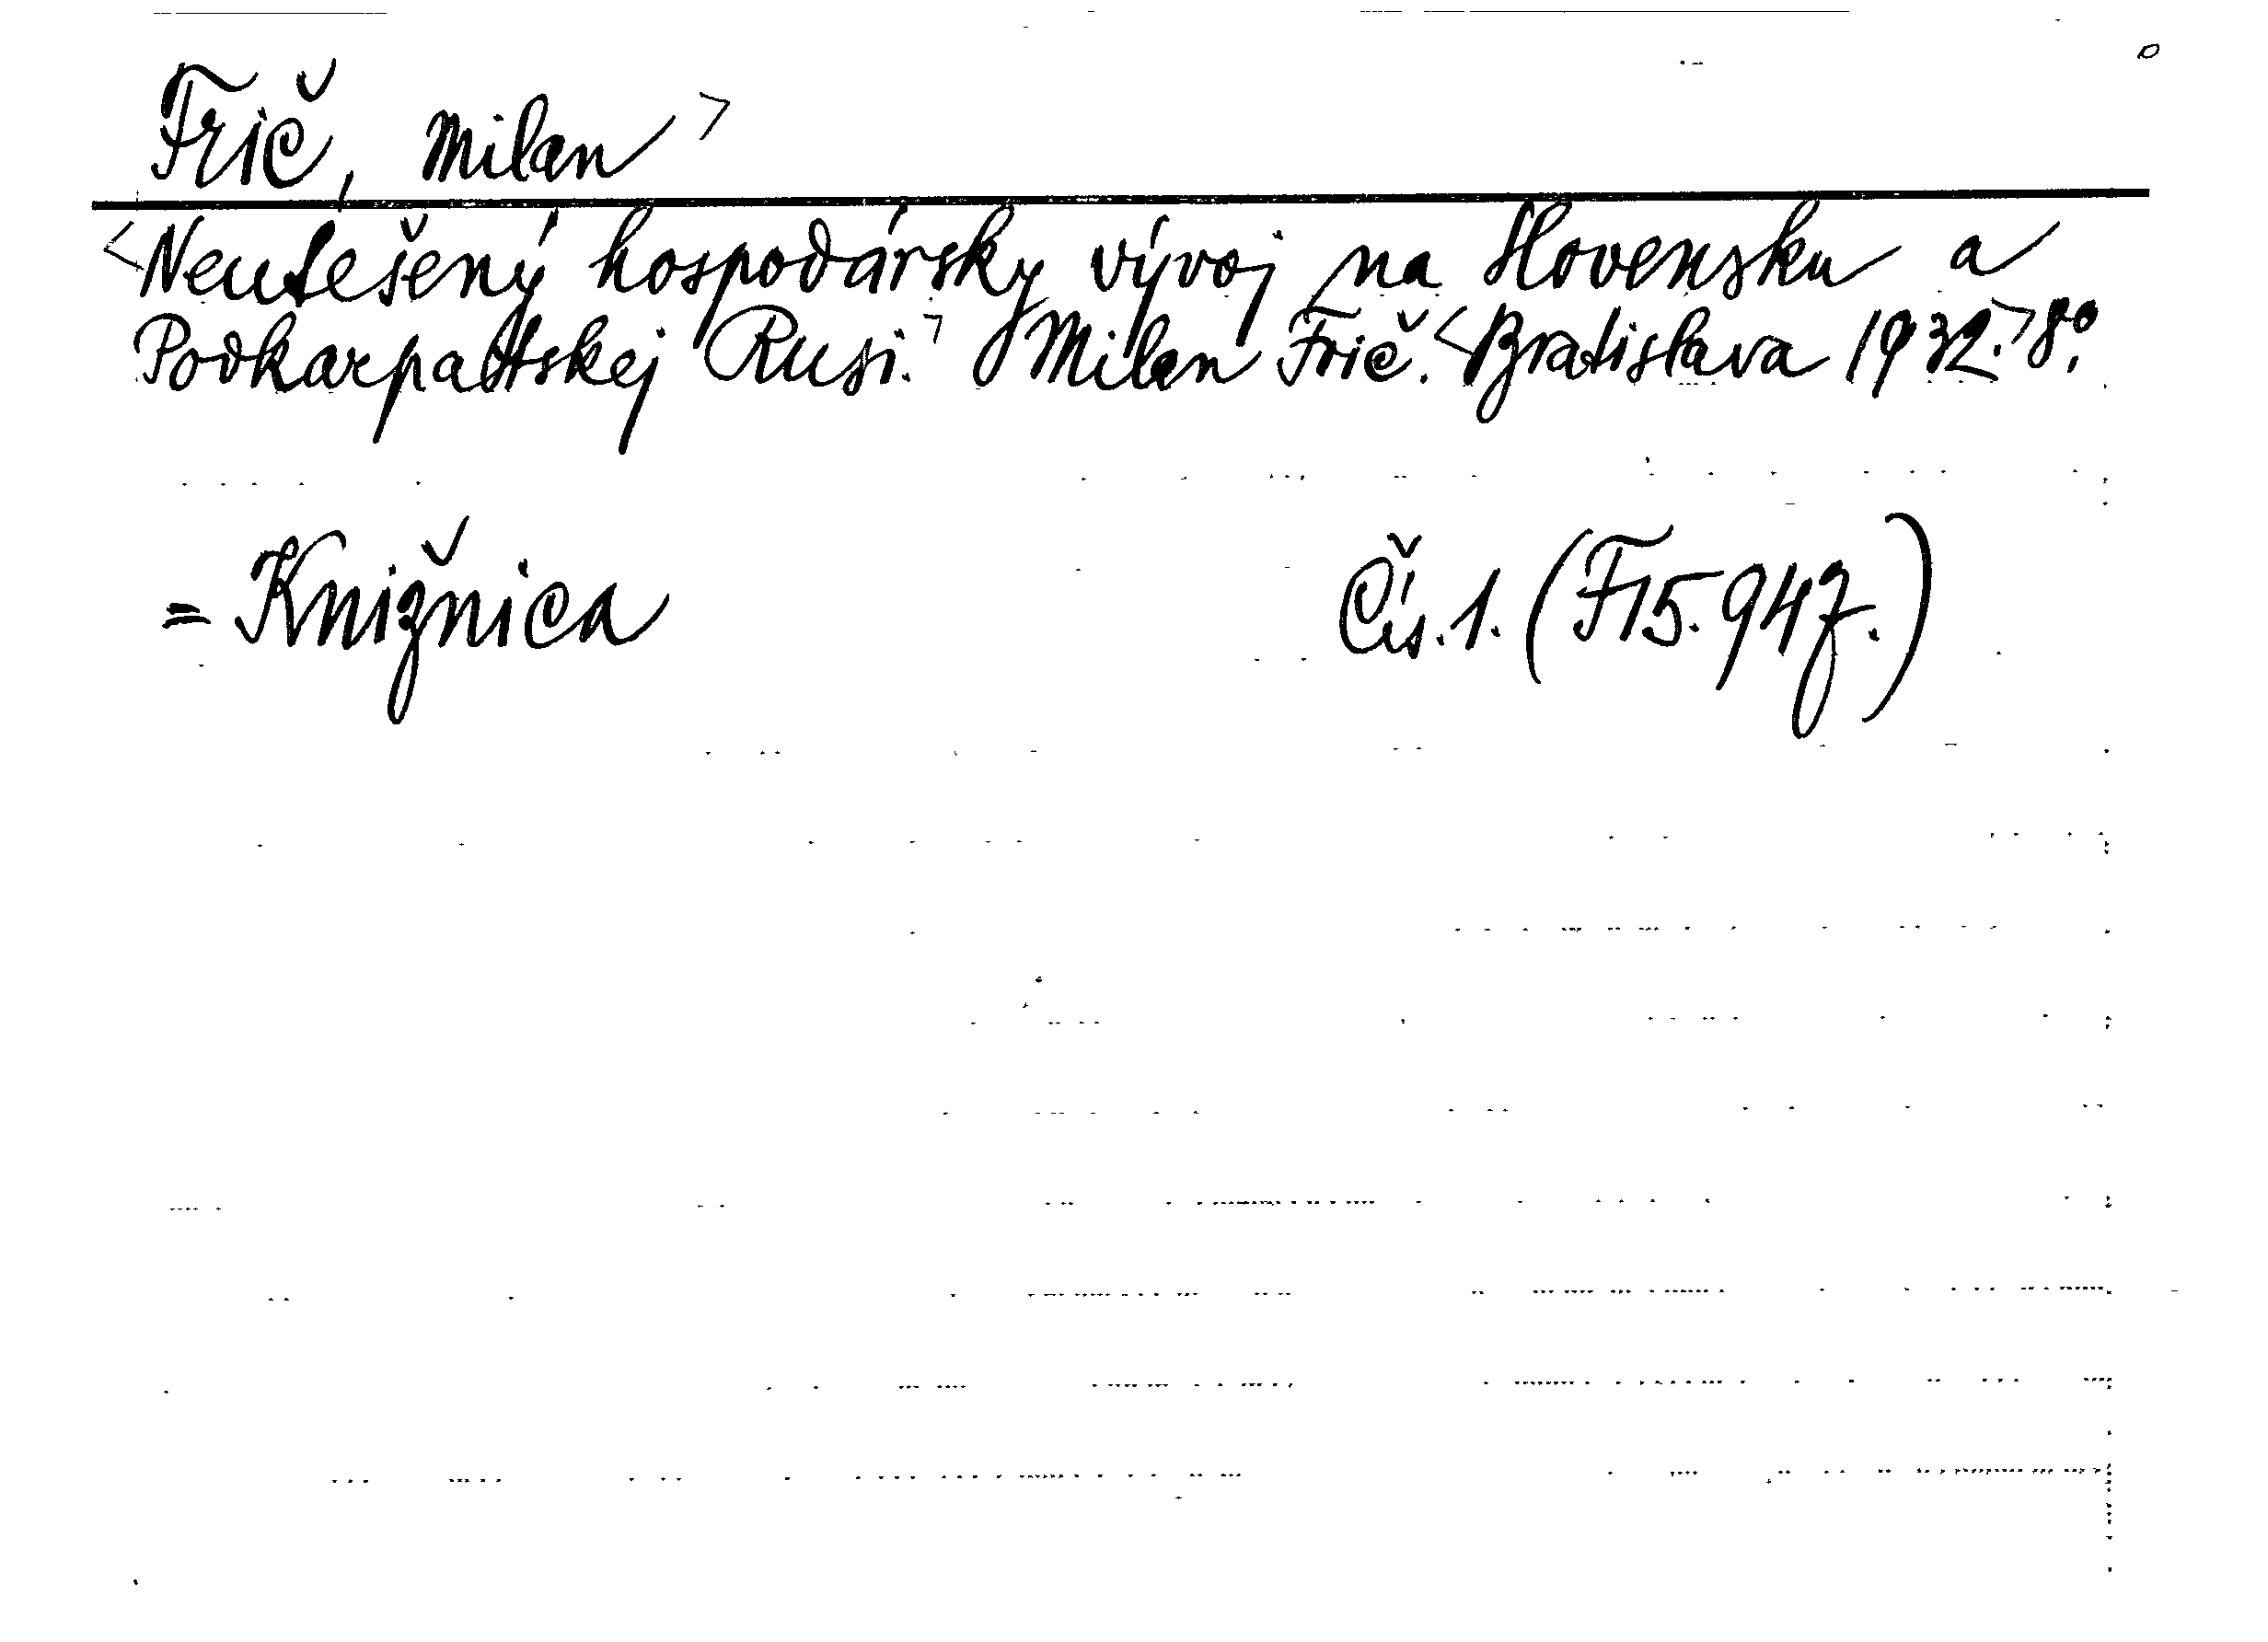 Frič, Milan >
<Neutešený hospodársky vývoj na Slovensku a
Podkarpatskej Rusi.> Milan Frič. <Bratislava 1932.> 8°.
= Knižnica Čís. 1. (F15.947.)